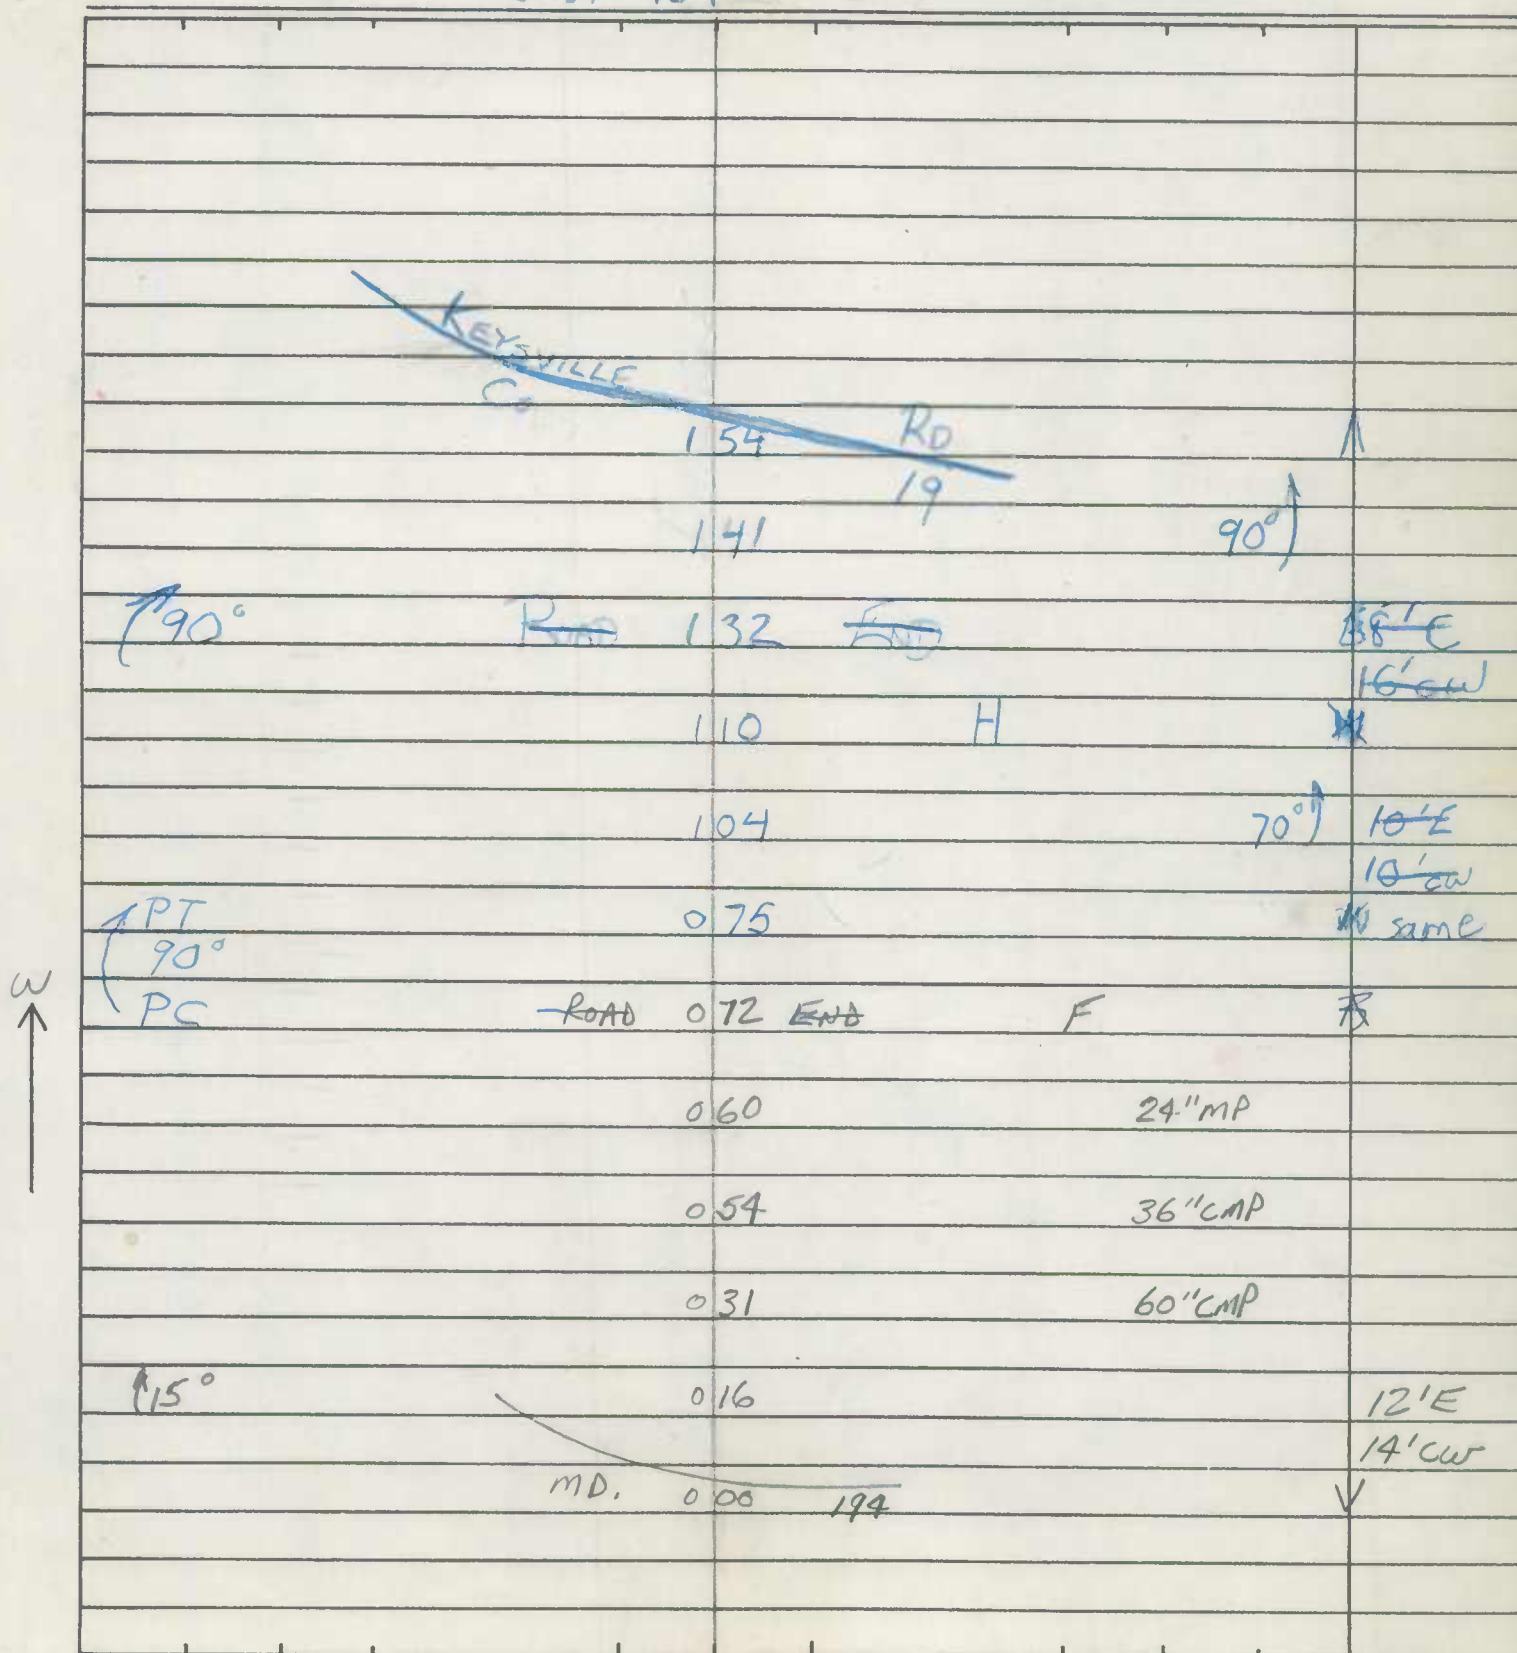 KEYSVILLE RD
Co 19
1 54
1 41 90°
90° ROAD 1 32 END 18'E
16'CW
1 10 H
1 04 70° 10'E
10'CW
PT 0 75 same
90°
PC ROAD 0 72 END F
W
0 60 24"MP
0 54 36"CMP
0 31 60"CMP
15° 0 16 12'E
14'CW
MD. 0 00 194